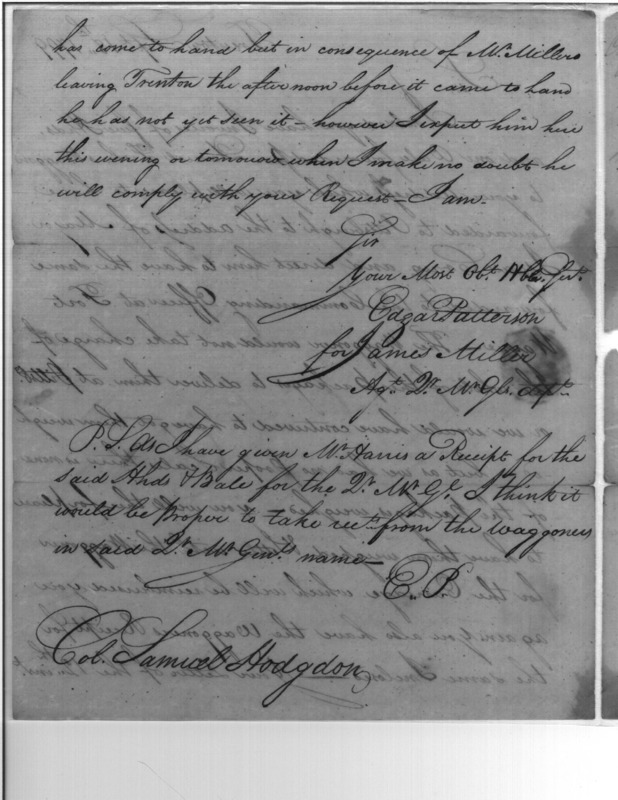 has come to hand but in consequence of Mr. Millers
leaving Trenton the afternoon before it came to hand
he has not yet seen it – however I expect him here
this evening or tomorrow when I make no doubt he
will comply with your Request – I am.
Sir
your Most Obt. Hble. Sert.
Edgar Patterson
for James Miller
Agt. Qr. Mr. Gls. Dept.
P.S. As I have given Mr. Harris a Receipt for the
said Hhds & Bale for the Qr. Mr. Gl. I think it
would be proper to take rect. from the waggoners
in said Qr. Mr. Genls. name –
E. P.
Col. Samuel Hodgdon